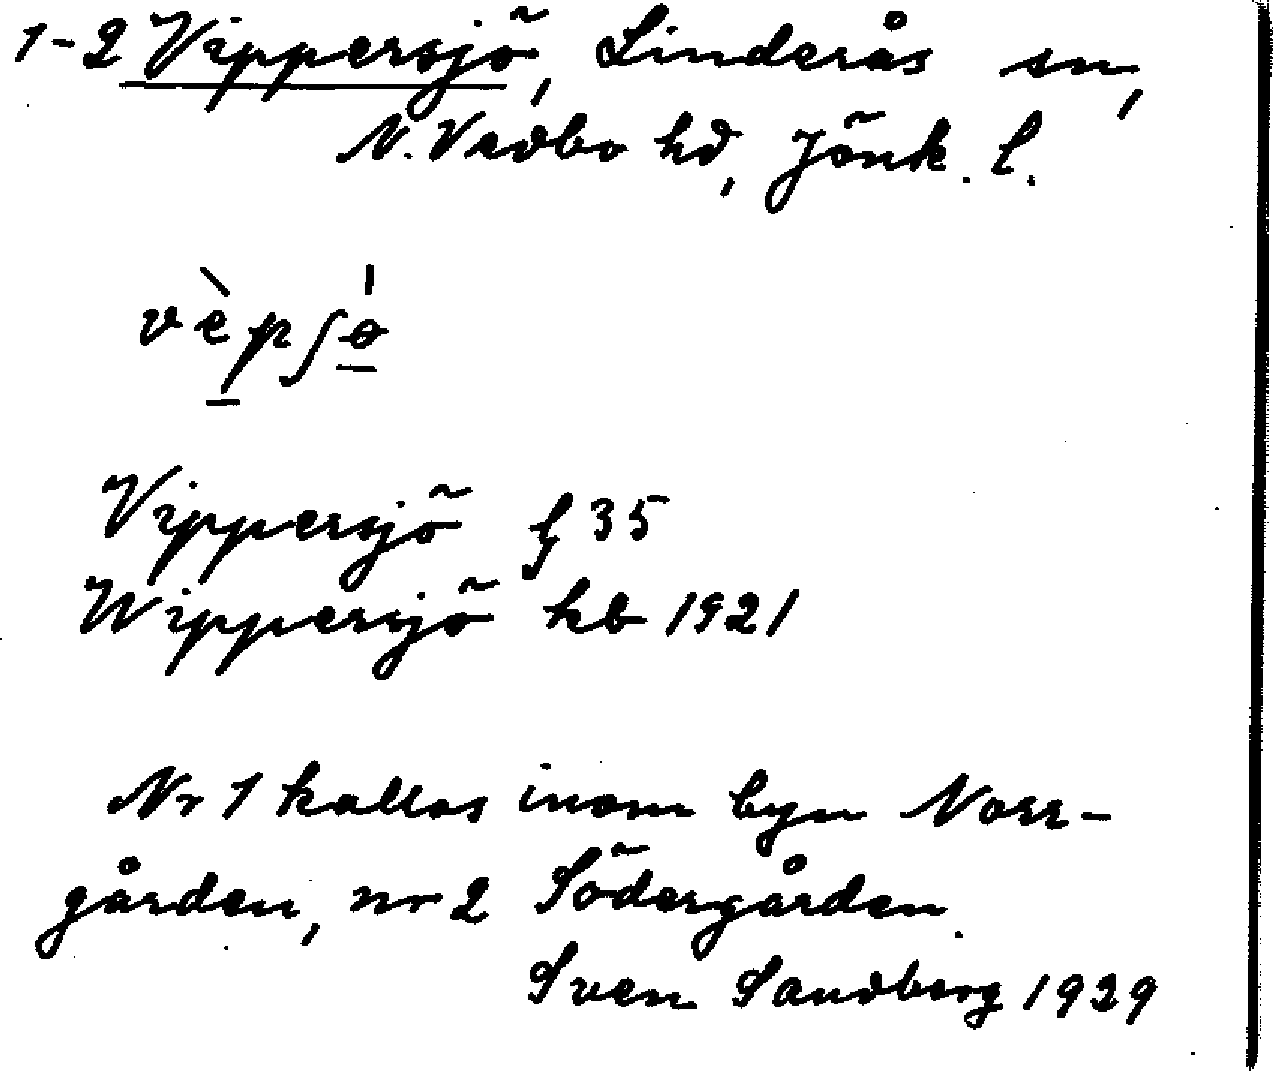 1-2 Vippersjö, Linderås sn,
N. Vedbo hd, Jönk. l.
vèpʃɵ́
Vippersjö f 35
Wippersjö hb 1921
Nr 1 kallas inom byn Norr-
gården, nr 2 Södergården.
Sven Sandberg 1929